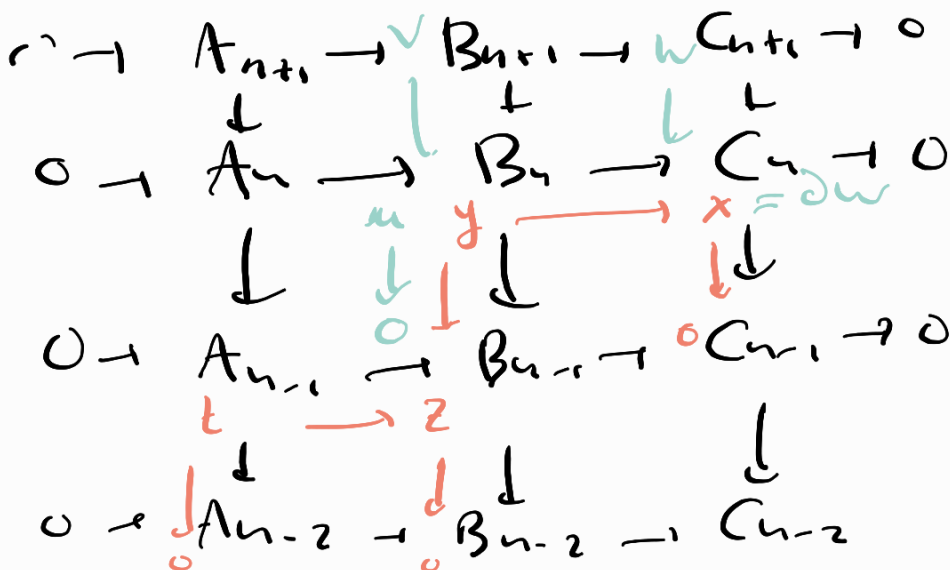 0 → A_{n+1} → V B_{n+1} → w C_{n+1} → 0
0 → A_n → B_n → C_n → 0
u y → x = ∂w
0
0 → A_{n-1} → B_{n-1} → 0 C_{n-1} → 0
t → z
0 → A_{n-2} → B_{n-2} → C_{n-2}
0 0